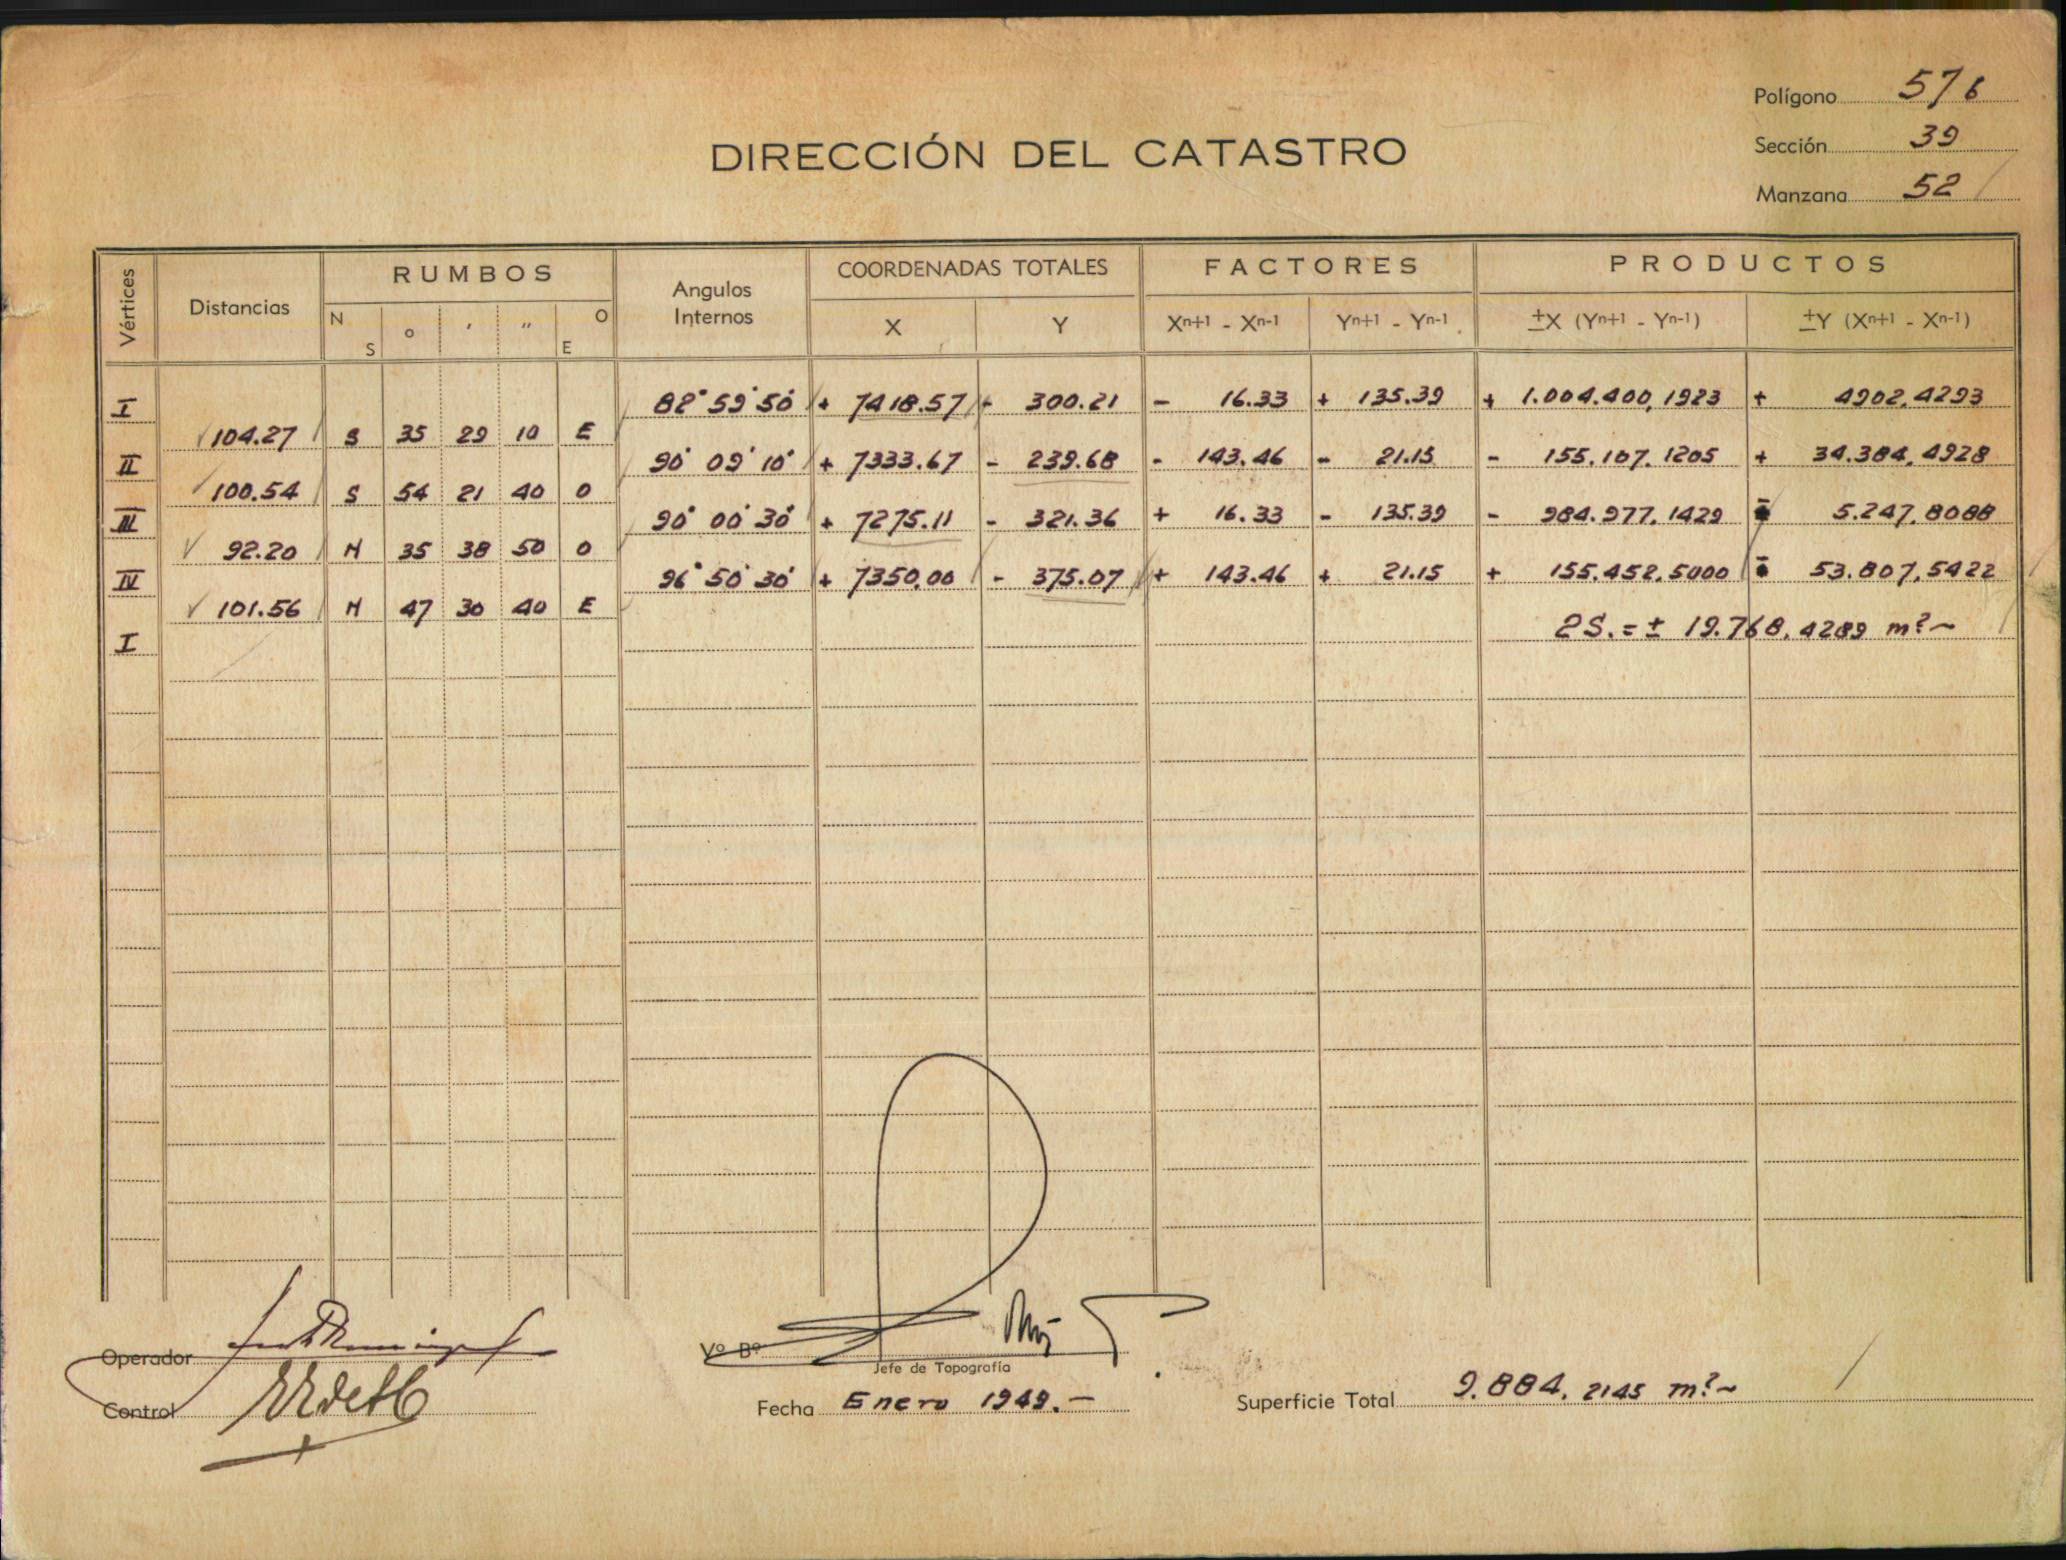 Polígono 576
DIRECCIÓN DEL CATASTRO
Sección 39
Manzana 52
Vértices Distancias RUMBOS Angulos Internos COORDENADAS TOTALES FACTORES PRODUCTOS
N S ° ' " O E X Y Xn+1 - Xn-1 Yn+1 - Yn-1 ±X (Yn+1 - Yn-1) ±Y (Xn+1 - Xn-1)
I 82° 59' 50" + 7418.57 - 300.21 - 16.33 + 135.39 + 1.004.400,1923 + 4902,4293
104.27 S 35 29 10 E
II 90° 09' 10" + 7333.67 - 239.68 - 143.46 - 21.15 - 155.107,1205 + 34.384,4928
100.54 S 54 21 40 O
III 90° 00' 30" + 7275.11 - 321.36 + 16.33 - 135.39 - 984.977,1429 - 5.247,8088
92.20 N 35 38 50 O
IV 96° 50' 30" + 7350.00 - 375.07 + 143.46 + 21.15 + 155.452,5000 - 53.807,5422
101.56 N 47 30 40 E
2S. = ± 19.768,4289 m²~
I
Operador
Vº Bº
Jefe de Topografía
Control
Fecha Enero 1949.-
Superficie Total 9.884,2145 m²~